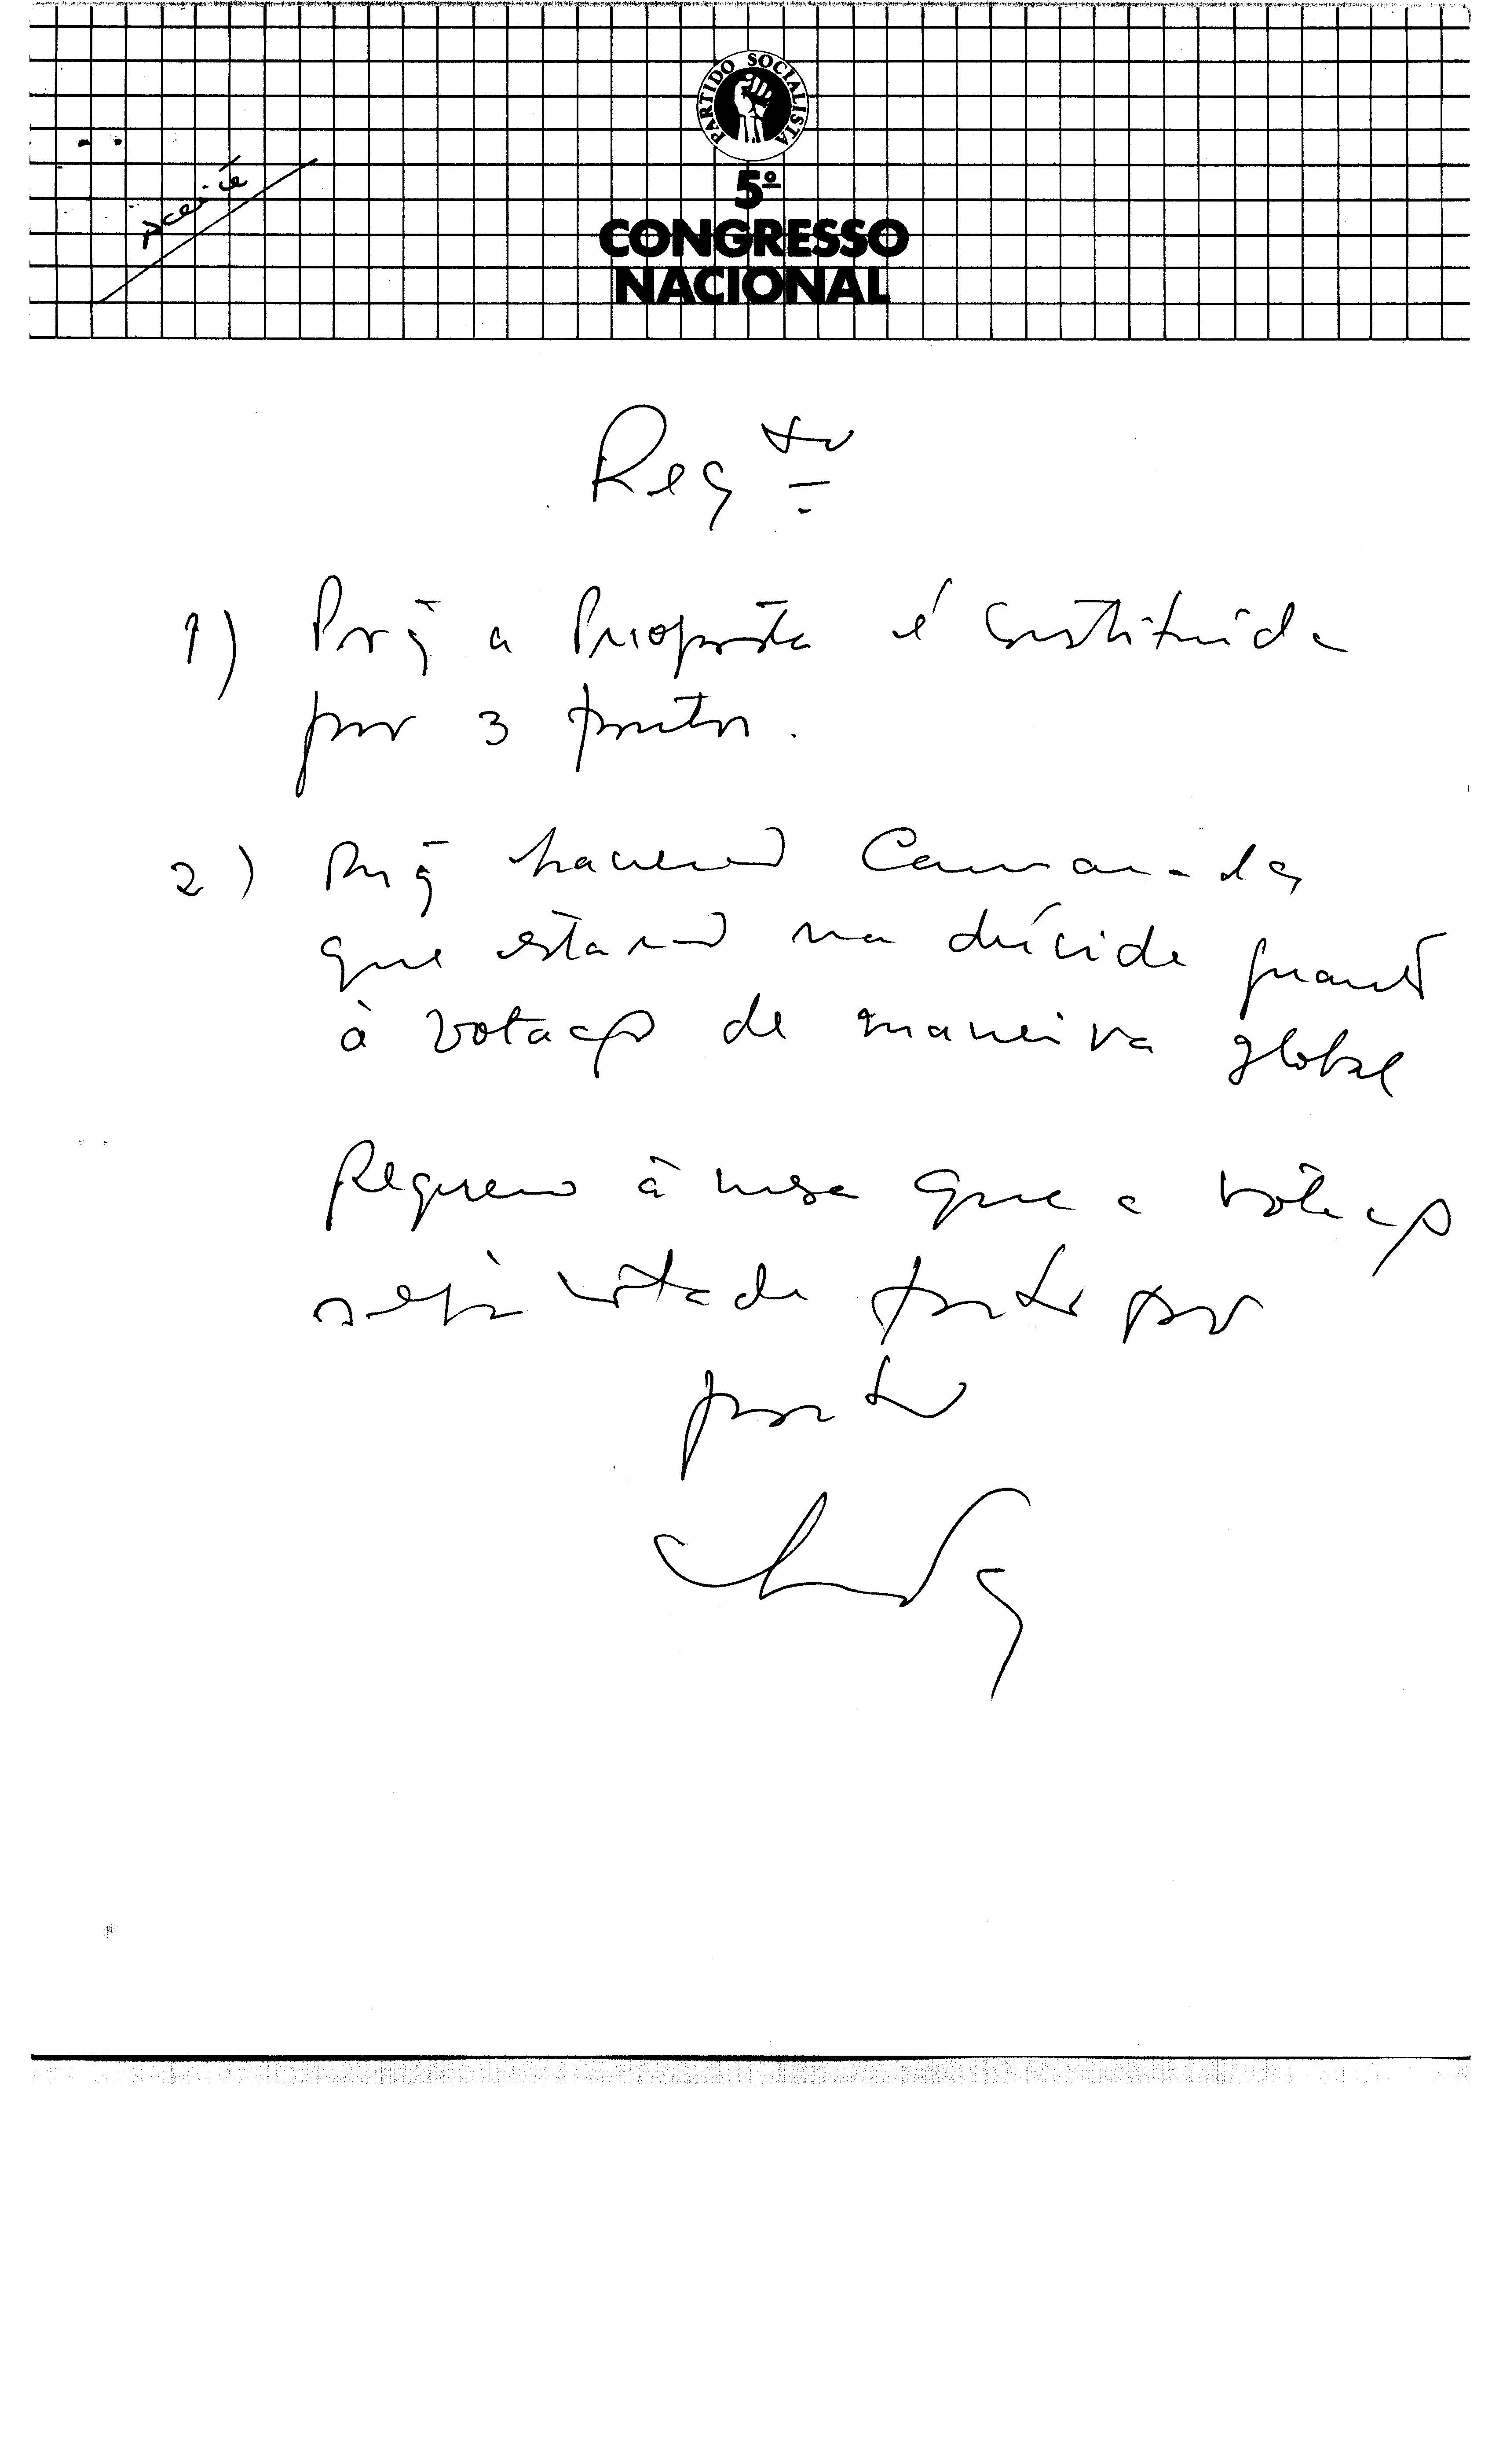 PARTIDO SOCIALISTA
5º
CONGRESSO
NACIONAL
Aceite
Reqto
1) Porq̃ a Proposta é Constituida
por 3 pontos.
2) Porq̃ havendo Camaradas
que estarão na dúvida quanto
à votação de maneira global
Requero à mesa que a votação
seja votada ponto por
ponto